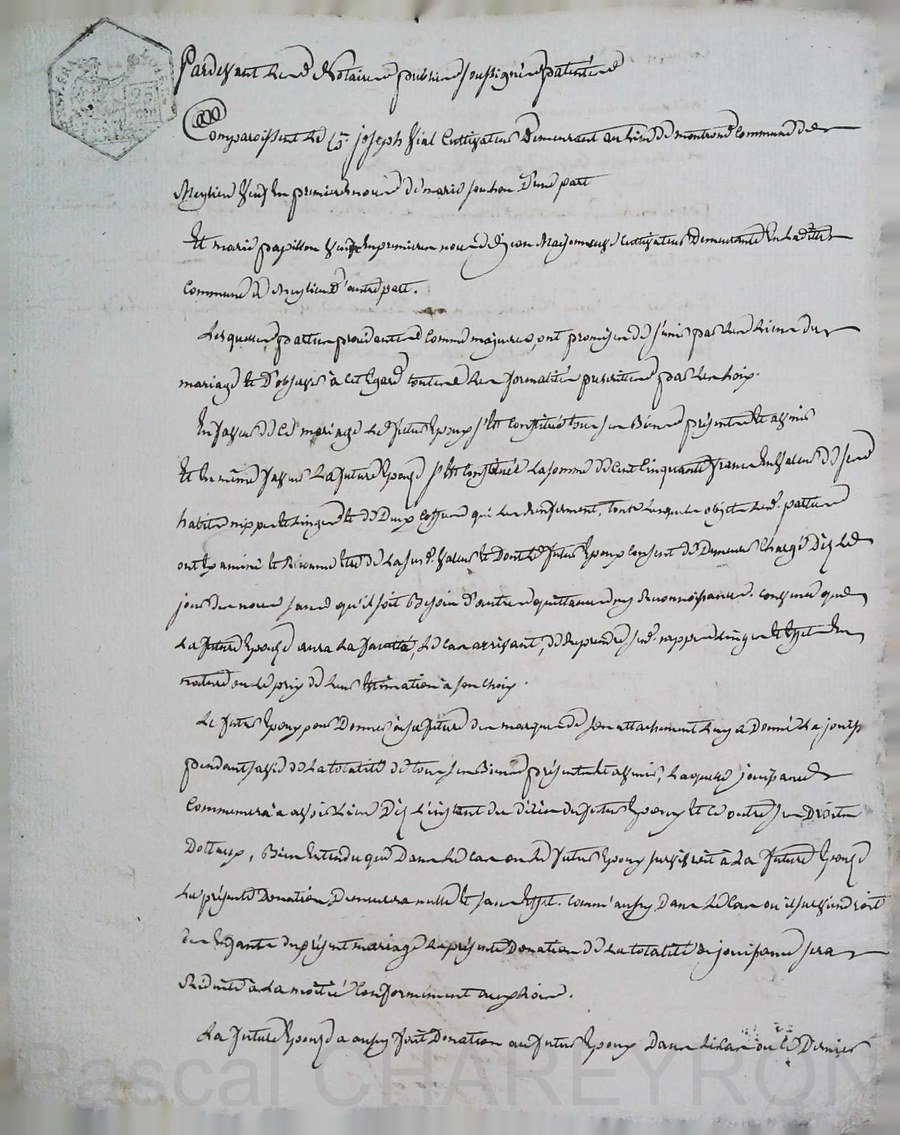 Pardevant les Notaires publics soussignés patentés
Comparoissent le Cn. joseph Vial Cultivateur Demeurant au lieu de montrond Commune de
Meylieu Veuf En premieres noces de marie souchon D'une part
Et marie papillon Veuve En premieres noces de jean Maisonneuve Cultivateur Demeurante En La ditte
Commune de Meylieu D'autre part.
Lesquelles parties procedantes Comme majeures, ont promis de s'unir par les Liens du
mariage et D'observer à cet Egard toutes Les formalités prescrites par Les Loix.
En faveur de Ce mariage Le futur Epoux s'Est Constitué tous ses Biens présents Et avenir
Et En même faveur La future Epouse s'Est Constituée La somme de Cent Cinquante francs En Valeur de ses
habits nippes et Linges Et de Deux Coffres qui Les Renferment, tous Lesquels objets Les d. parties
ont Examiné Et Reconnu être de La susd. Valeur Et Dont Le futur Epoux Consent de Demeurer Chargé Dès Le
jour des noces sans qu'il soit Besoin d'autres quittances ny Reconnoissances. Convenu que
La future Epouse aura La faculté, Le Cas arrivant, de Reprendre sesd. nippes Linges Et Effets En
nature ou Le prix de Leur Estimation à son Choix.
Le futur Epoux pour Donner à sa future des marques de son attachement Luy a Donné La jouiss
pendant sa vie de La totalité de tous ses Biens présents Et avenir, Laquelle jouissance
Commencera a avoir Lieu Dès L'instant du décès du futur Epoux Et Ce outre ses Droits
Dottaux, Bien Entendu que Dans Le Cas ou Le futur Epoux survivroit à La future Epouse
La présente Donation Demeurera nulle Et sans Effet. Comm'aussy Dans Le Cas ou il surviendroit
des Enfants du présent mariage La présente Donation de La totalité en jouissance sera
Réduite à La moitié Conformement aux Loix.
La future Epouse a aussy fait Donation au futur Epoux Dans Le Cas ou Ce Dernier
Pascal CHAREYRON